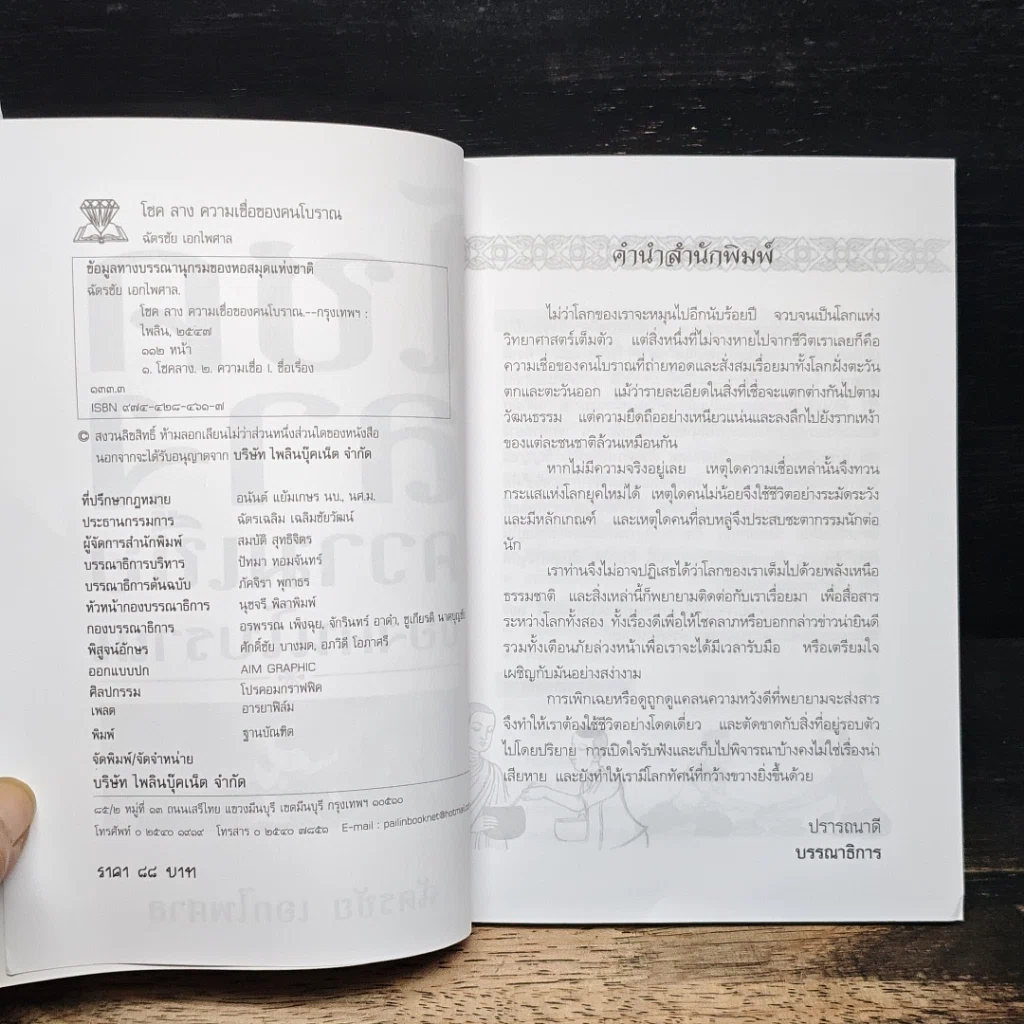 โชค ลาง ความเชื่อของคนโบราณ
ฉัตรชัย เอกไพศาล
ข้อมูลทางบรรณานุกรมของหอสมุดแห่งชาติ
ฉัตรชัย เอกไพศาล.
โชค ลาง ความเชื่อของคนโบราณ.--กรุงเทพฯ :
ไพลิน, ๒๕๔๗
๑๑๒ หน้า
๑. โชคลาง. ๒. ความเชื่อ I. ชื่อเรื่อง
๑๓๓.๓
ISBN ๙๗๔-๔๒๘-๔๖๑-๗
© สงวนลิขสิทธิ์ ห้ามลอกเลียนไม่ว่าส่วนหนึ่งส่วนใดของหนังสือ
นอกจากจะได้รับอนุญาตจาก บริษัท ไพลินบุ๊คเน็ต จำกัด
ที่ปรึกษากฎหมาย อนันต์ แย้มเกษร นบ., นศ.ม.
ประธานกรรมการ ฉัตรเฉลิม เฉลิมชัยวัฒน์
ผู้จัดการสำนักพิมพ์ สมบัติ สุทธิจิตร
บรรณาธิการบริหาร ปัทมา หอมจันทร์
บรรณาธิการต้นฉบับ ภัคจิรา พุกาธร
หัวหน้ากองบรรณาธิการ นุชจรี พิลาพิมพ์
กองบรรณาธิการ อรพรรณ เพ็งฉุย, จักรินทร์ อาดำ, ชูเกียรติ
พิสูจน์อักษร ศักดิ์ชัย บางมด, อภวิดี โอภาศรี
ออกแบบปก AIM GRAPHIC
ศิลปกรรม โปรคอมกราฟฟิค
เพลต อารยาฟิล์ม
พิมพ์ ฐานบัณฑิต
จัดพิมพ์/จัดจำหน่าย
บริษัท ไพลินบุ๊คเน็ต จำกัด
๘๕/๒ หมู่ที่ ๑๓ ถนนเสรีไทย แขวงมีนบุรี เขตมีนบุรี กรุงเทพฯ ๑๐๕๑๐
โทรศัพท์ ๐ ๒๕๔๐ ๑๙๑๙ โทรสาร ๐ ๒๕๔๐ ๗๘๕๑ E-mail : pailinbooknet@hotmail.
ราคา ๘๘ บาท
คำนำสำนักพิมพ์
ไม่ว่าโลกของเราจะหมุนไปอีกนับร้อยปี จวบจนเป็นโลกแห่ง
วิทยาศาสตร์เต็มตัว แต่สิ่งหนึ่งที่ไม่จางหายไปจากชีวิตเราเลยก็คือ
ความเชื่อของคนโบราณที่ถ่ายทอดและสั่งสมเรื่อยมาทั้งโลกฝั่งตะวัน
ตกและตะวันออก แม้ว่ารายละเอียดในสิ่งที่เชื่อจะแตกต่างกันไปตาม
วัฒนธรรม แต่ความยึดถืออย่างเหนียวแน่นและลงลึกไปยังรากเหง้า
ของแต่ละชนชาติล้วนเหมือนกัน
หากไม่มีความจริงอยู่เลย เหตุใดความเชื่อเหล่านั้นจึงทวน
กระแสแห่งโลกยุคใหม่ได้ เหตุใดคนไม่น้อยจึงใช้ชีวิตอย่างระมัดระวัง
และมีหลักเกณฑ์ และเหตุใดคนที่ลบหลู่จึงประสบชะตากรรมนักต่อ
นัก
เราท่านจึงไม่อาจปฏิเสธได้ว่าโลกของเราเต็มไปด้วยพลังเหนือ
ธรรมชาติ และสิ่งเหล่านี้ก็พยายามติดต่อกับเราเรื่อยมา เพื่อสื่อสาร
ระหว่างโลกทั้งสอง ทั้งเรื่องดีเพื่อให้โชคลาภหรือบอกกล่าวข่าวน่ายินดี
รวมทั้งเตือนภัยล่วงหน้าเพื่อเราจะได้มีเวลารับมือ หรือเตรียมใจ
เผชิญกับมันอย่างสง่างาม
การเพิกเฉยหรือดูถูกดูแคลนความหวังดีที่พยายามจะส่งสาร
จึงทำให้เราต้องใช้ชีวิตอย่างโดดเดี่ยว และตัดขาดกับสิ่งที่อยู่รอบตัว
ไปโดยปริยาย การเปิดใจรับฟังและเก็บไปพิจารณาบ้างคงไม่ใช่เรื่องน่า
เสียหาย และยังทำให้เรามีโลกทัศน์ที่กว้างขวางยิ่งขึ้นด้วย
ปรารถนาดี
บรรณาธิการ